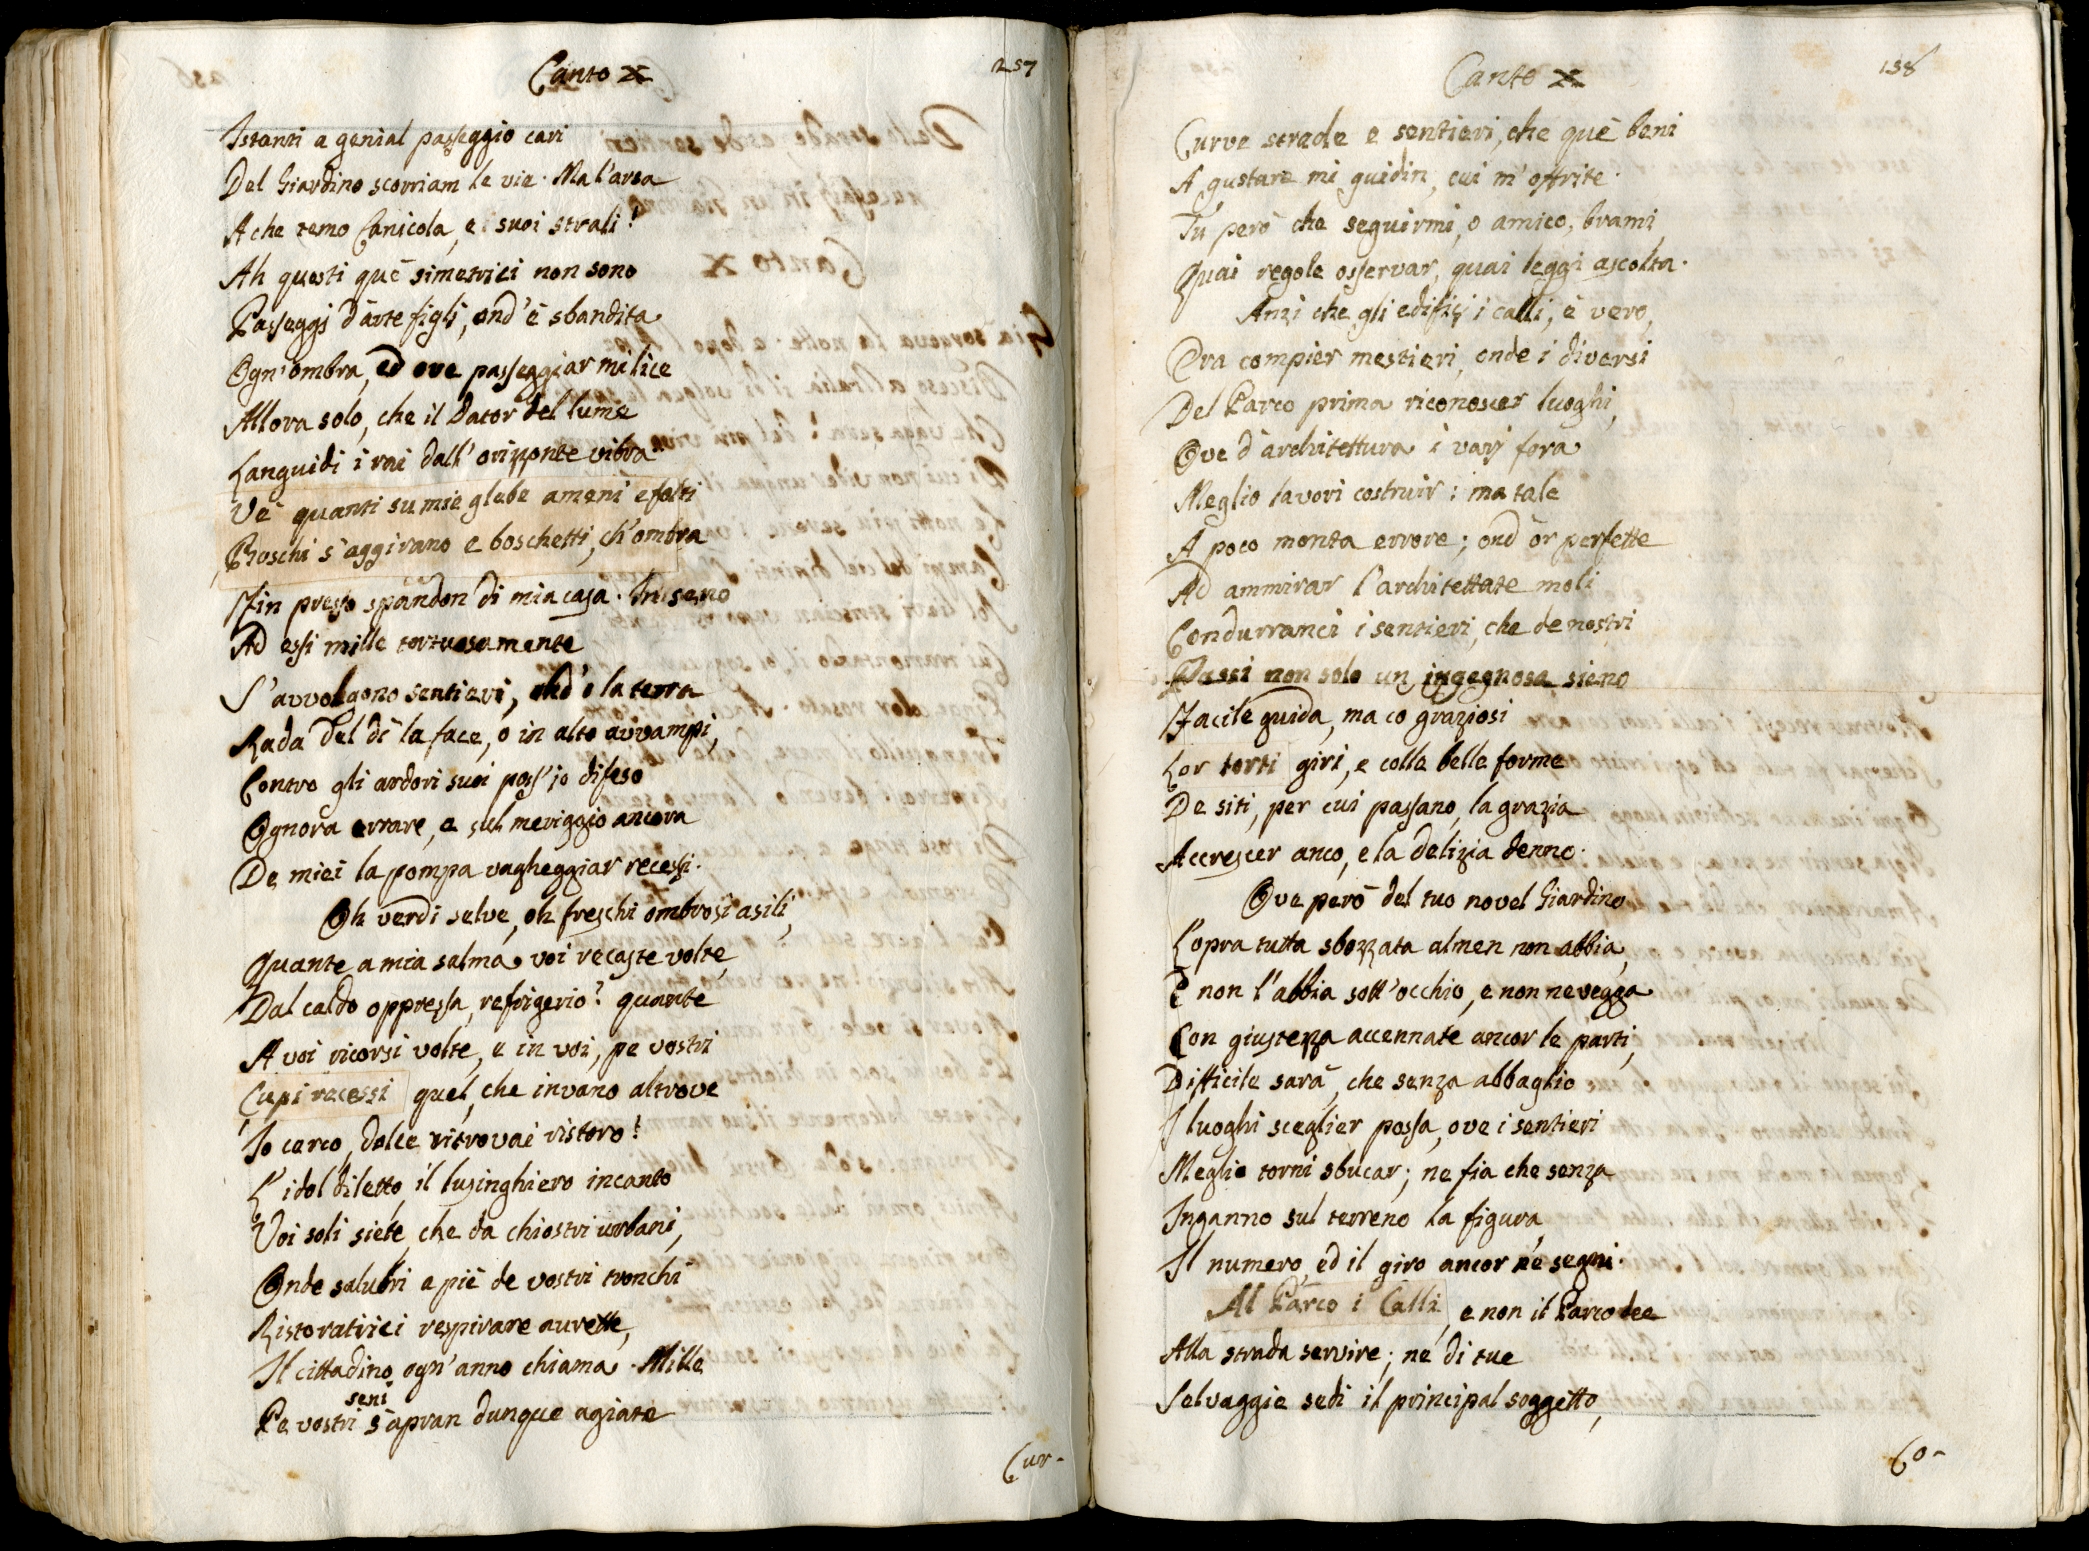 Canto X
257
Istanti a genial passeggio cari
Del Giardino scorriam le vie. Ma l'arsa
A che temo Canicola, e i suoi strali?
Ah questi què simetrici non sono
Passeggj d'arte figlj, ond'è sbandita
Ogn'ombra, ed ove passeggiar mi lice
Allora solo, che il Dator del lume
Languidi i rai dall'orizzonte vibra.
Ve' quanti su mie glebe ameni e folti
Boschi s'aggirano e boschetti, ch'ombra
Fin presso spandon di mia casa. In seno
Ad essi mille tortuosamente
S'avvolgono sentieri, ond'o la terra
Rada del dì la face, o in alto avvampi,
Contro gli ardori suoi poss'io difeso
Ognora errare, e sul meriggio ancora
De miei la pompa vagheggiar recessi.
Oh verdi selve, oh freschi ombrosi asili,
Quante a mia salma voi recaste volte,
Dal caldo oppressa, refrigerio? quante
A voi ricorsi volte, e in voi, pe vostri
Cupi recessi quel, che invano altrove
Io cerco, dolce ritrovai ristoro?
L'idol diletto, il lusinghiero incanto
Voi soli siete, che da chiostri urbani,
Onde salubri a piè de vostri tronchi
Ristoratrici respirare aurette,
Il cittadino ogn'anno chiama. Mille
seni
Pe vostri s'apran dunque agiate
Cur-
Canto X
158
Curve strade e sentieri, che què beni
A gustare mi guidin, cui m'offrite.
Tu però che seguirmi, o amico, brami
Quai regole osservar, quai leggi ascolta.
Anzi che gli edifizj i calli, è vero,
Ora compier mestieri, onde i diversi
Del Parco prima riconoscer luoghi,
Ove d'architettura i varj fora
Meglio lavori costruir: ma tale
A poco monta errore; ond'or perfette
Ad ammirar l'architettate moli
Condurranci i sentieri, che de nostri
Passi non solo un ingegnosa sieno
Facile guida, ma co graziosi
Lor torti giri, e colle belle forme
De siti, per cui passano, la grazia
Accrescer anco, e la delizia denno.
Ove però del tuo novel Giardino
L'opra tutta sbozzata almen non abbia,
E non l'abbia sott'occhio, e non ne vegga
Con giustezza accennate ancor le parti,
Difficile sarà, che senza abbaglio
I luoghi sceglier possa, ove i sentieri
Meglio torni sbucar; ne fia che senza
Inganno sul terreno la figura,
Il numero, ed il giro ancor ne segni.
Al Parco i Calli, e non il Parco dee
Alla strada servire; ne di tue
Selvaggie sedi il principal soggetto,
Co-